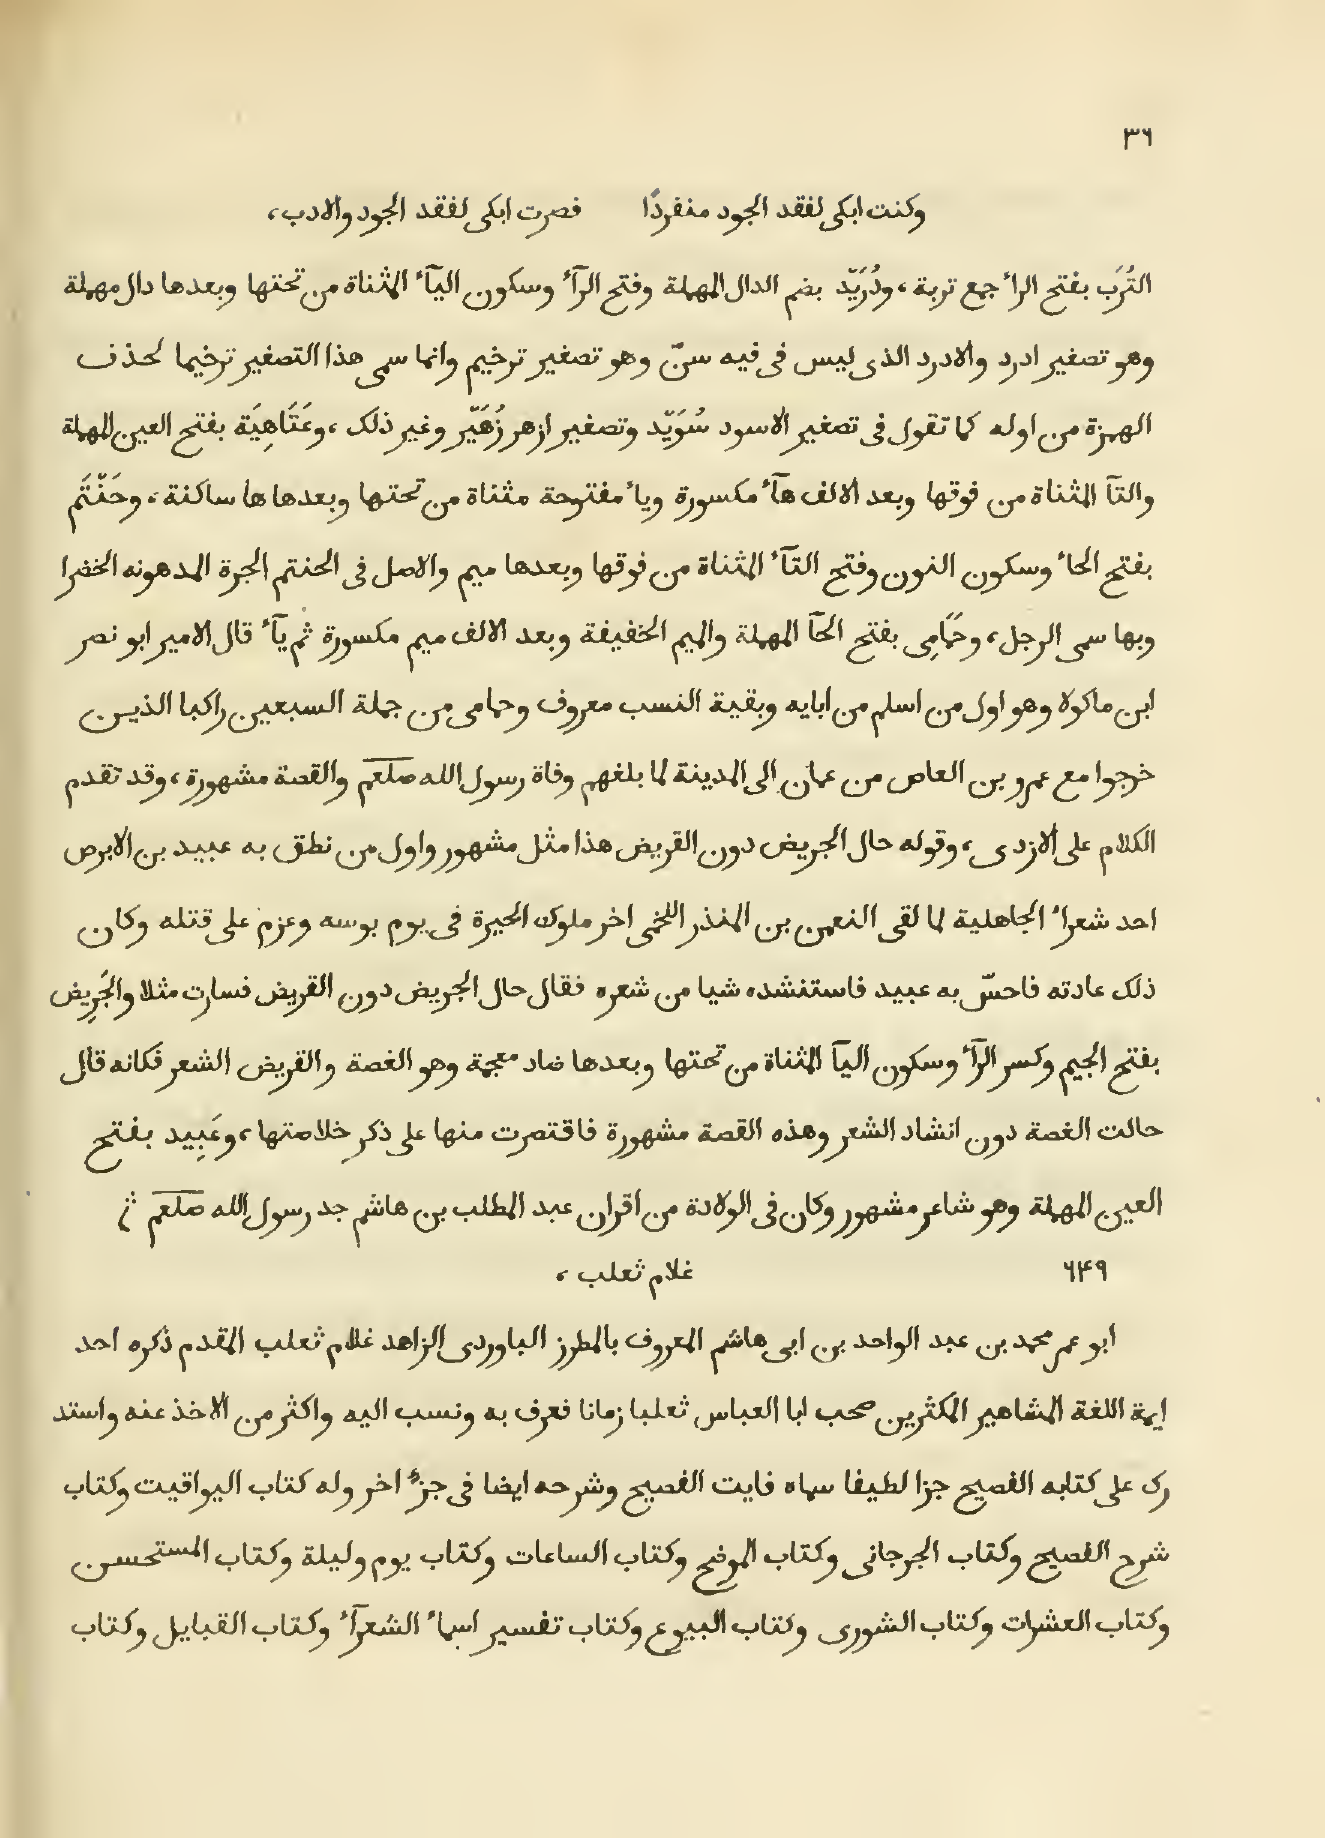 ٣٦
وكنت ابكى لفقد الجود منفردًا فصرت ابكى لفقد الجود والادب،
التُرَب بفتح الراء جمع تربة، ودُرَيّد بضم الدال المهملة وفتح الرآء وسكون اليآء المثناة من تحتها وبعدها دال مهملة
وهو تصغير ادرد والادرد الذى ليس فى فيه سنّ وهو تصغير ترخيم وانما سمى هذا التصغير ترخيما لحذف
الهمزة من اوله كما تقول فى تصغير الاسود سُوَيّد وتصغير ازهر زُهَيّر وغير ذلك، وعَتَاهِيَة بفتح العين المهملة
والتآ المثناة من فوقها وبعد الالف هآء مكسورة وياء مفتوحة مثناة من تحتها وبعدها ها ساكنة، وحَنّتَم
بفتح الحاء وسكون النون وفتح التآء المثناة من فوقها وبعدها ميم والاصل فى الحنتم الجرة المدهونه الخضرا
وبها سمى الرجل، وحَمَامِى بفتح الحآ المهملة والميم الخفيفة وبعد الالف ميم مكسورة ثم يآء قال الامير ابو نصر
ابن ماكولا وهو اول من اسلم من ابايه وبقية النسب معروف وحمامى من جملة السبعين راكبا الذين
خرجوا مع عمرو بن العاص من عمان الى المدينة لما بلغهم وفاة رسول الله صلعم والقصة مشهورة، وقد تقدم
الكلام على الازدى، وقوله حال الجريض دون القريض هذا مثل مشهور واول من نطق به عبيد بن الابرص
احد شعراء الجاهلية لما لقى النعمن بن المنذر اللخمى اخر ملوك الحيرة فى يوم بوسه وعزم على قتله وكان
ذلك عادته فاحسّ به عبيد فاستنشده شيا من شعره فقال حال الجريض دون القريض فسارت مثلا والجَرِيض
بفتح الجيم وكسر الرآء وسكون اليآ المثناة من تحتها وبعدها ضاد معجمة وهو الغصة والقريض الشعر فكانه قال
حالت الغصة دون انشاد الشعر وهذه القصة مشهورة فاقتصرت منها على ذكر خلاصتها، وعَبِيد بفتح
العين المهملة وهو شاعر مشهور وكان فى الولادة من اقران عبد المطلب بن هاشم جد رسول الله صلعم
٦٤٩ غلام ثعلب،
ابو عمر محمد بن عبد الواحد بن ابى هاشم المعروف بالمطرز الباوردى الزاهد غلام ثعلب المقدم ذكره احد
ايمة اللغة المشاهير المكثرين صحب ابا العباس ثعلبا زمانا فعرف به ونسب اليه واكثر من الاخذ عنه واستد
رك على كتابه الفصيح جزا لطيفا سماه فايت الفصيح وشرحه ايضا فى جزء اخر وله كتاب اليواقيت وكتاب
شرح الفصيح وكتاب الجرجانى وكتاب الموضح وكتاب الساعات وكتاب يوم وليلة وكتاب المستحسن
وكتاب العشرات وكتاب الشورى وكتاب البيوع وكتاب تفسير اسماء الشعرآء وكتاب القبايل وكتاب